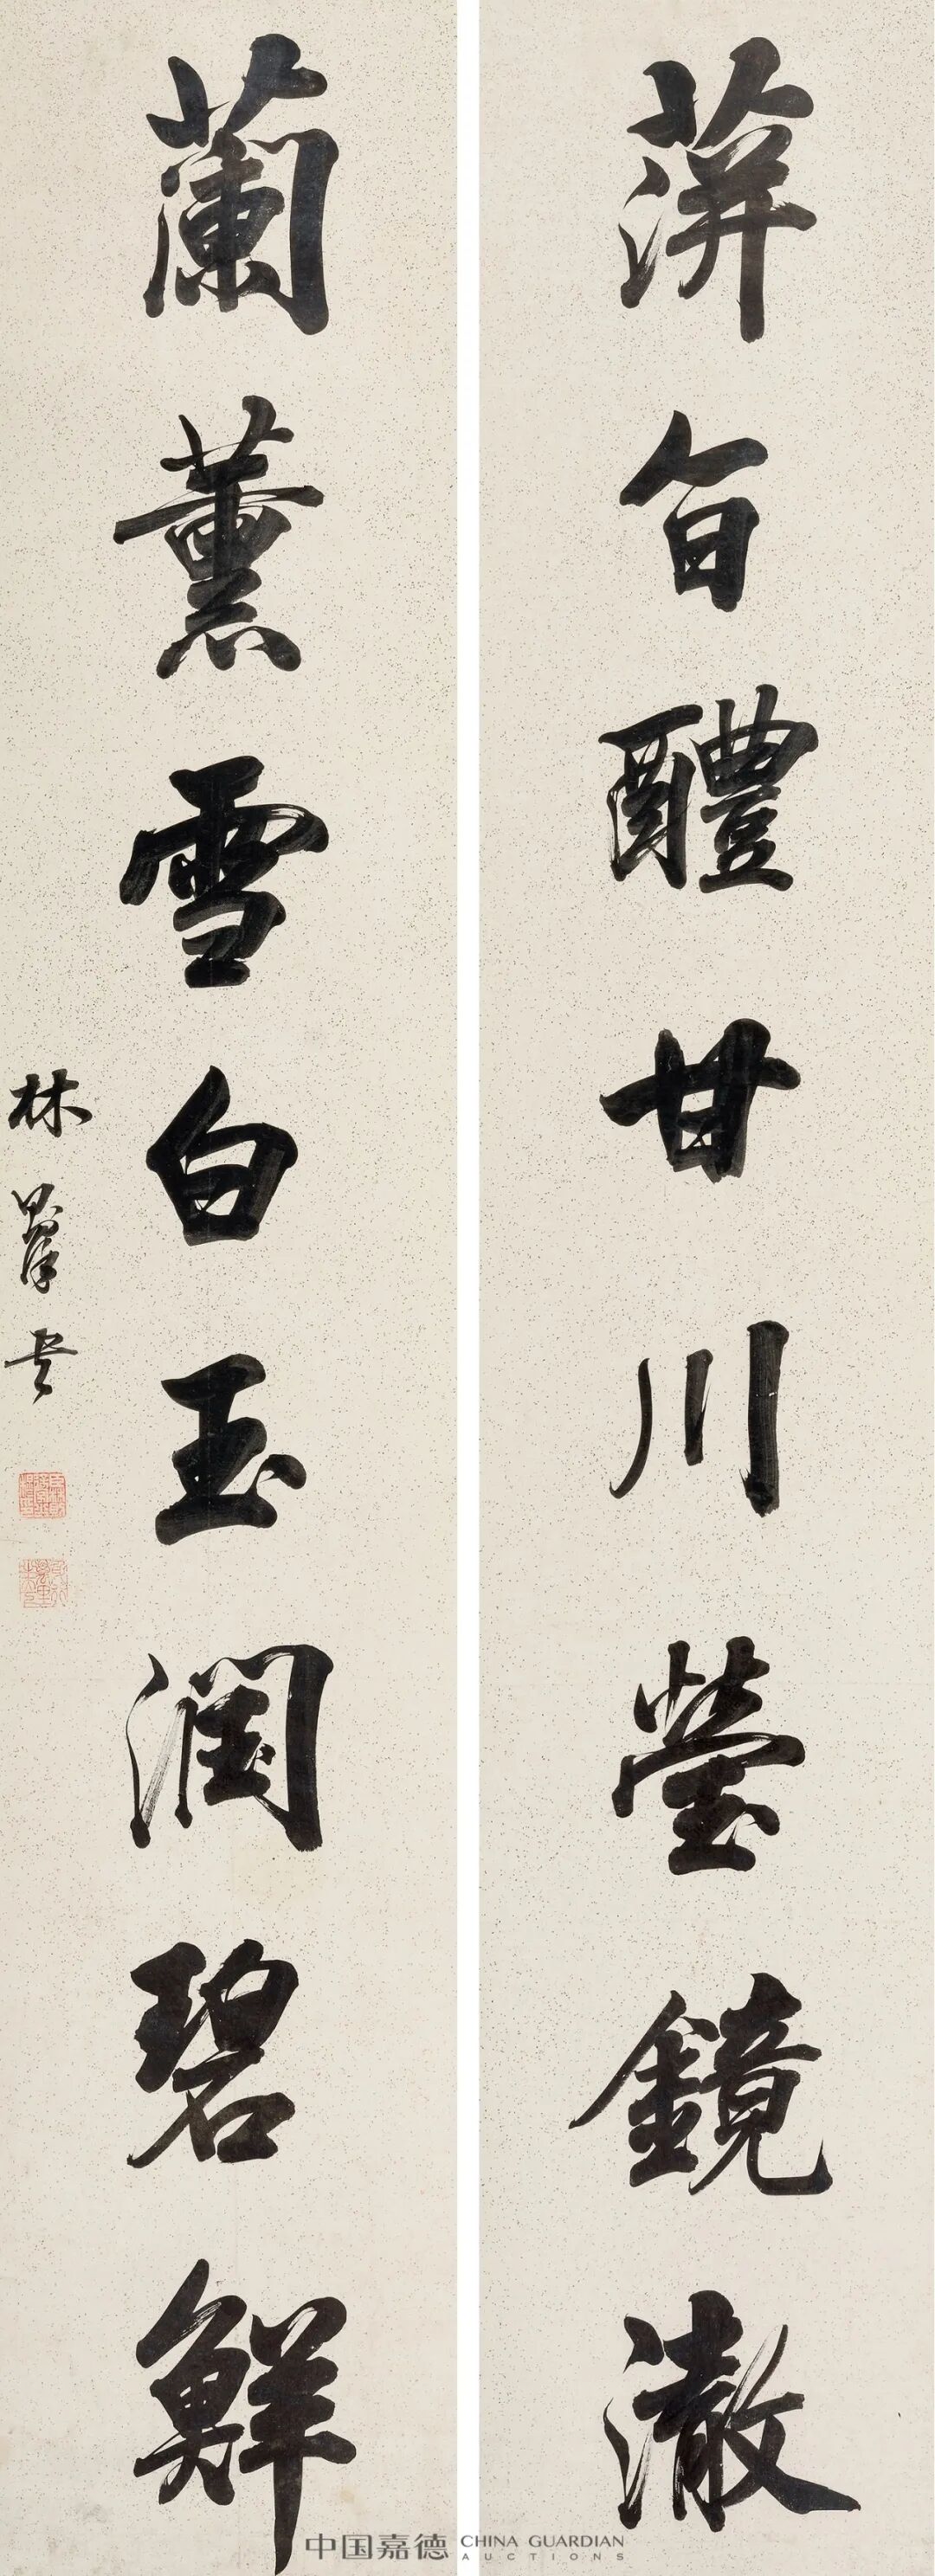 蓱旨醴甘川莹鏡澈
蘭薰雪白玉潤碧鮮
林
中国嘉德 CHINA GUARDIAN
AUCTIONS